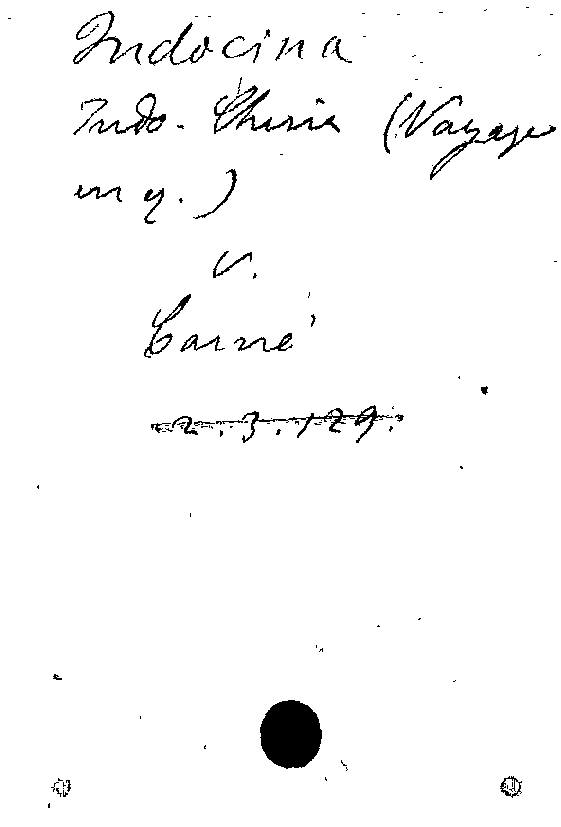 Indocina
Indo-Chine (Voyage
en q.)
v.
Carné
2.3.129.